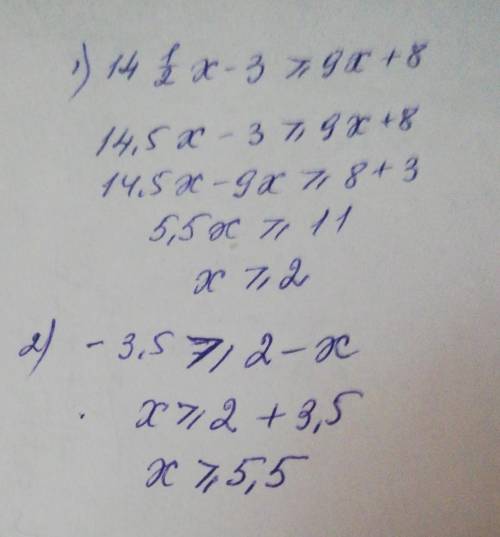 1) 14 1/2 x - 3 ⩾ 9x + 8
14,5x - 3 ⩾ 9x + 8
14,5x - 9x ⩾ 8 + 3
5,5x ⩾ 11
x ⩾ 2
2) - 3,5 ⩾ 2 - x
x ⩾ 2 + 3,5
x ⩾ 5,5